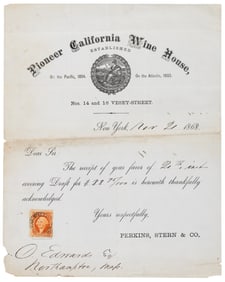 Pioneer California Wine House,
ESTABLISHED
On the Pacific, 1854. On the Atlantic, 1860.
Nos. 14 and 16 VESEY-STREET.
New York, Nov 21 1868
Dear Sir
The receipt of your favor of 20th inst
covering Draft for $ 22 00/100 is herewith thankfully
acknowledged.
Yours respectfully,
PERKINS, STERN & CO.
O. Edwards Esq
Northampton, Mass.